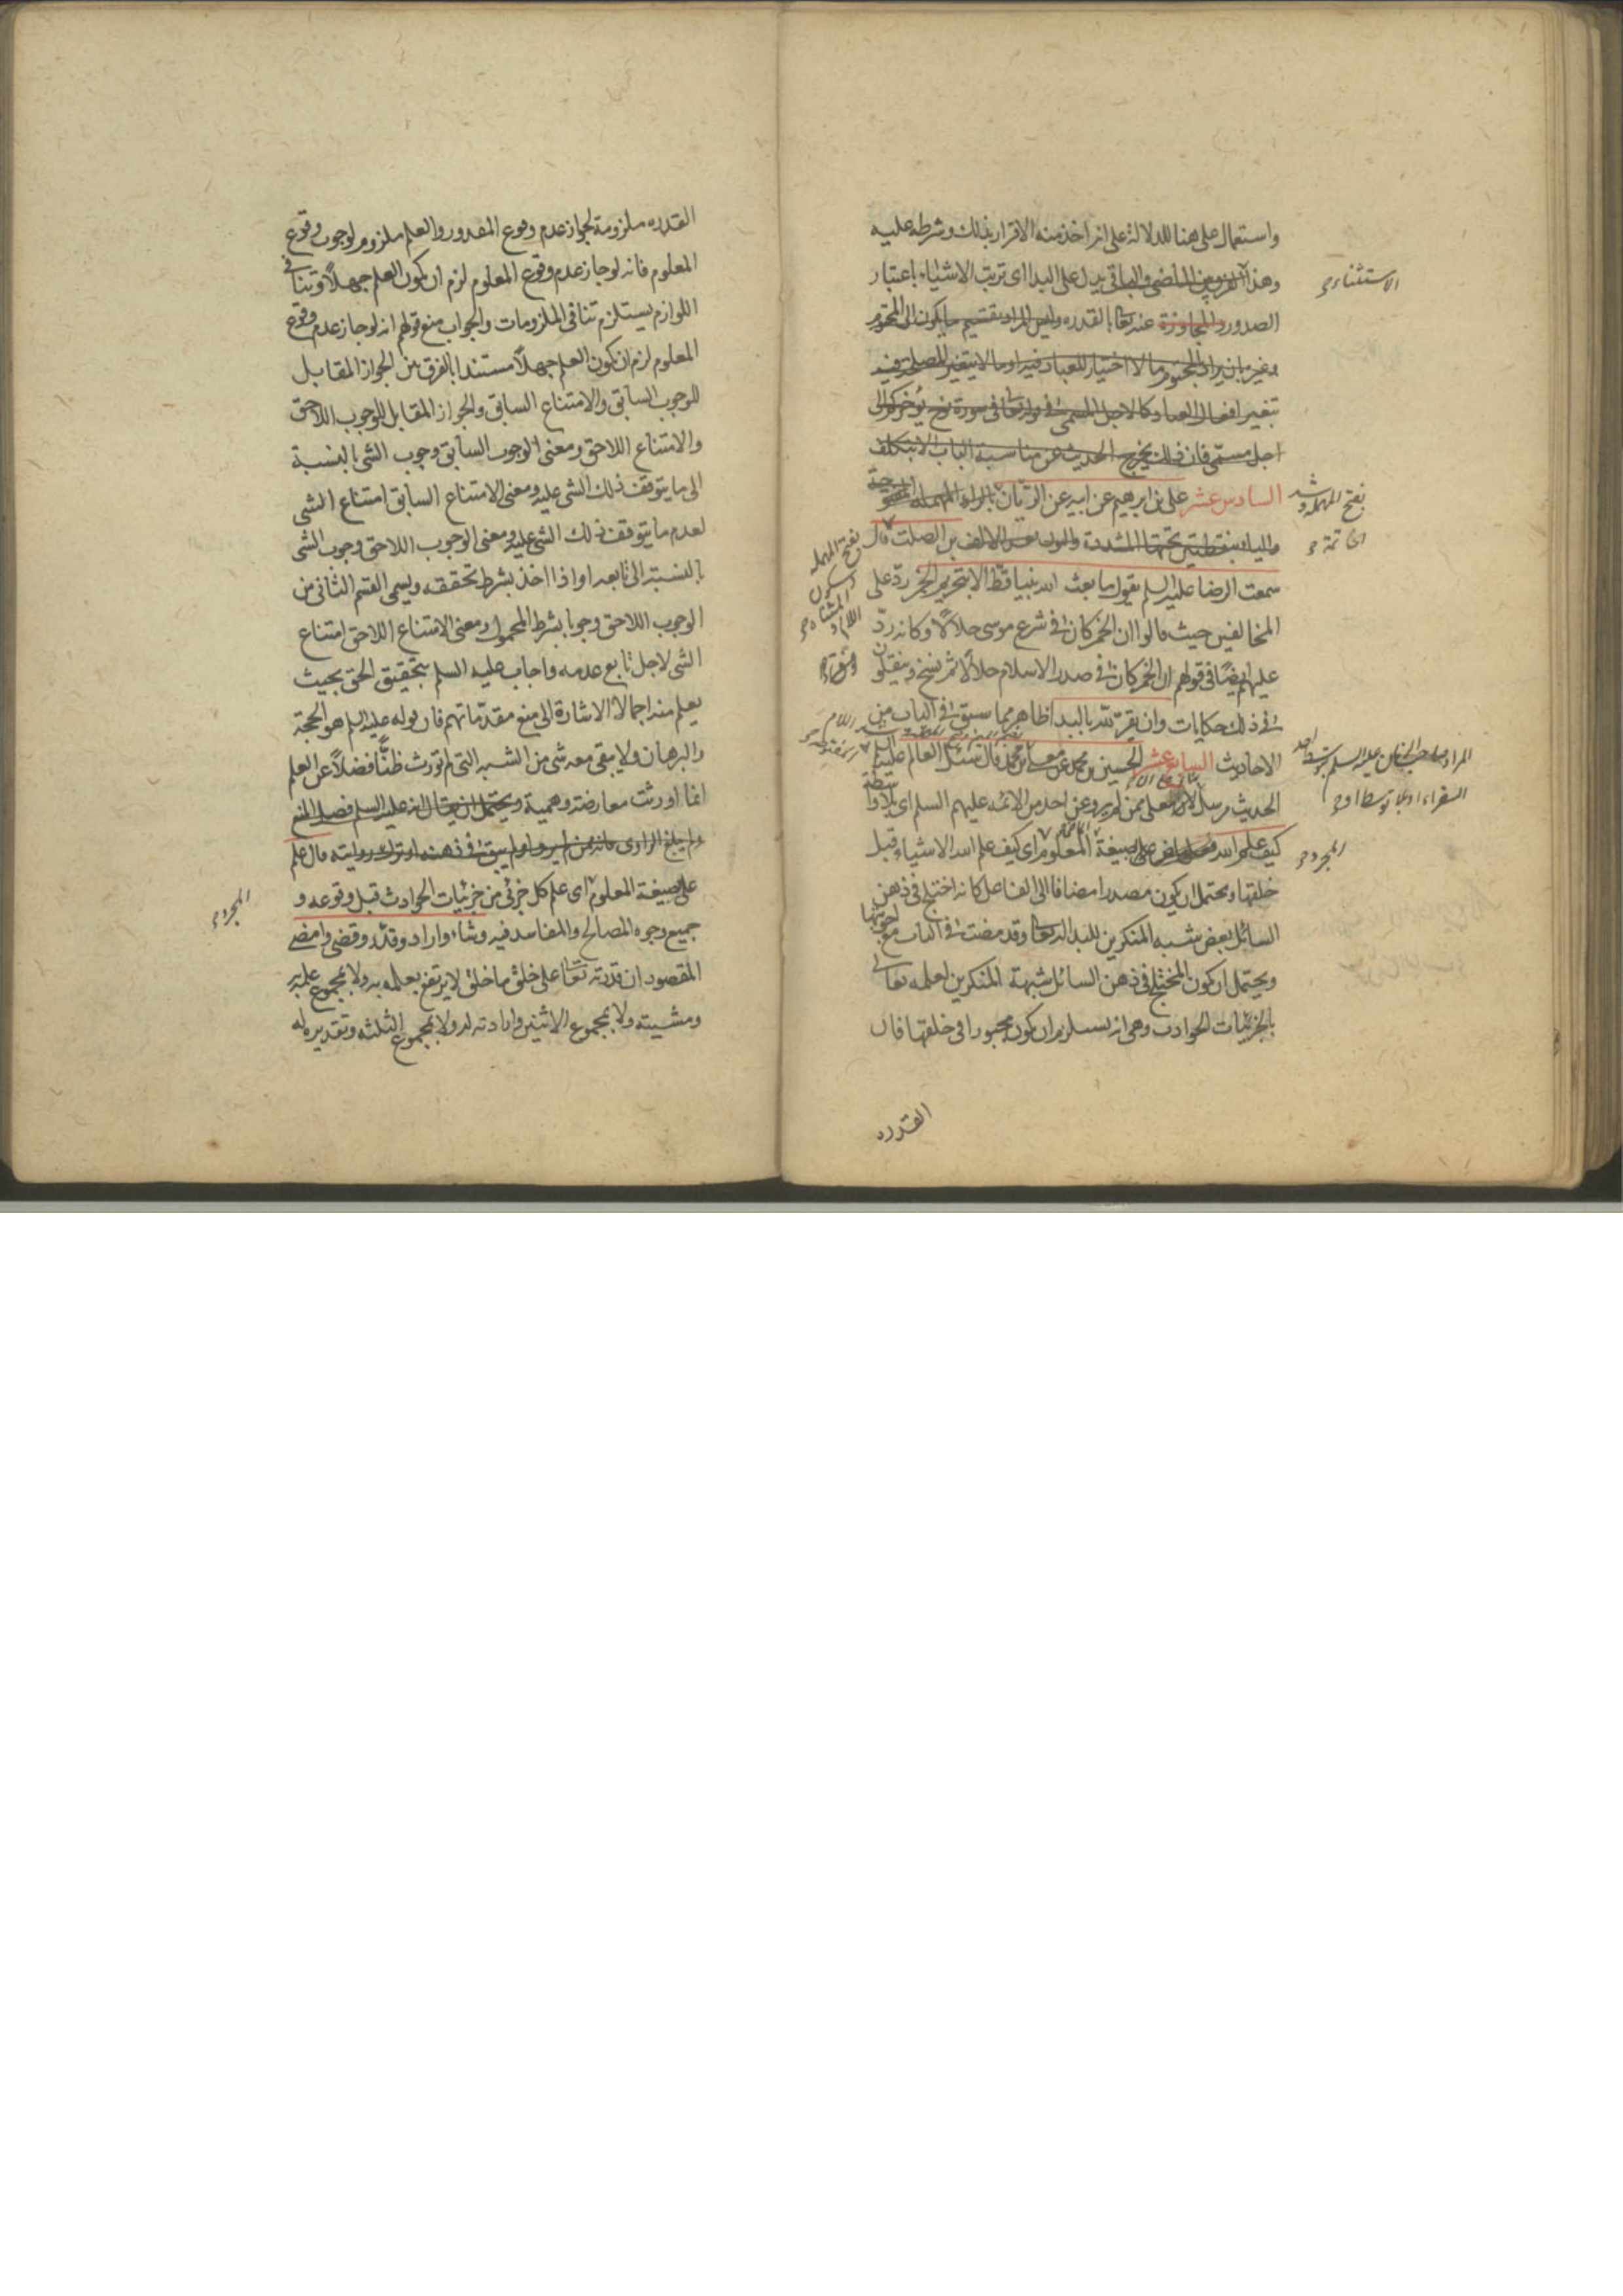 واستعمال على هنا للدلالة على انه اخذ منه الاقرار بذلك وشرطه عليه
وهذا الفرق بين الماضي والباقي يدل على البدا اى ترتب الاشياء باعتبار
الاستثناء
الصدور والمجاوزة عنه تعا بالقدره وليس المراد تقسيم ما يكون الى المحتوم
وغيره بان يراد بالمحتوم ما لا اختيار للعباد فيه او ما لا يتغير المصلحة فيه
بتغير افعال العباد كالاجل المسمى في قوله تعالى في سورة نوح يؤخركم الى
اجل مسمى فان ذلك يخرج الحديث عن مناسبة الباب الا بتكلف
السادس عشر على بن ابرهيم عن ابيه عن الريّان بالراء المهملة
بفتح المهملة وشد
والياء بنقطتين تحتها المشددة والنون بعد الالف بن الصلت قال
الخاتمة
بفتح المهملة
وسكون
اللام و
المثناة
سمعت الرضا عليه السلم يقول ما بعث الله نبيا قطّ الا بتحريم الخمر ردّ على
المخالفين حيث قالوا ان الخمر كان في شرع موسى حلالًا وكانه ردّ
عليهم ايضًا في قولهم ان الخمر كان في صدر الاسلام حلالًا ثم نسخ وينقلون
في ذلك حكايات وان يقرّ لله بالبدا ظاهر مما سبق في الباب من
الاحاديث السابع عشر الحسين بن محمد عن معلى بن محمد قال سئل العالم عليه السلم
المراد صاحب الزمان عليه السلم بتوسط احد
السفراء او بلا توسط او
الحديث مرسل لان المعلى ممن لم يرو عن احد من الائمه عليهم السلم اى بلا واسطة
كيف علم الله على صيغة المعلوم اى كيف علم الله الاشياء قبل
المجرد
خلقها ويحتمل ان يكون مصدرا مضافا الى الفاعل كانه اختلج في ذهن
السائل بعض شبه المنكرين للبدا لله تعا وقد مضت في الباب مع اجوبتها
ويحتمل ان يكون المختلج في ذهن السائل شبهة المنكرين لعلمه تعالى
بالجزئيات الحوادث وهى انه يستلزم ان يكون مجبورا في خلقتها فان
القدره
القدره ملزومة لجواز عدم وقوع المقدور والعلم ملزوم لوجوب وقوع
المعلوم فانه لو جاز عدم وقوع المعلوم لزم ان يكون العلم جهلًا وتنافى
اللوازم يستلزم تنافى الملزومات والجواب منع قولهم انه لو جاز عدم وقوع
المعلوم لزم ان يكون العلم جهلًا مستندا بالفرق بين الجواز المقابل
للوجوب السابق والامتناع السابق والجواز المقابل للوجوب اللاحق
والامتناع اللاحق ومعنى الوجوب السابق وجوب الشى بالنسبة
الى ما يتوقف ذلك الشى عليه ومعنى الامتناع السابق امتناع الشى
لعدم ما يتوقف ذلك الشى عليه ومعنى الوجوب اللاحق وجوب الشى
بالنسبة الى تابعه او اذا اخذ بشرط تحققه ويسمى القسم الثانى من
الوجوب اللاحق وجوبا بشرط المحمول ومعنى الامتناع اللاحق امتناع
الشى لاجل تابع عدمه واجاب عليه السلم بتحقيق الحق بحيث
يعلم منه اجمالا الاشارة الى منع مقدّماتهم فان قوله عليه السلم هو الحجة
والبرهان ولا يبقى معه شى من الشبه التى لم تورث ظنًّا فضلًا عن العلم
انما اورثت معارضة وهمية ويحتمل ان يقال انه عليه السلم فصل المنع
ولم يبلغ الراوى فانه ممن لم يرو او لم يبق في ذهنه او ترك روايته قال علم
على صيغة المعلوم اى علم كل جزئى من جزئيات الحوادث قبل وقوعه و
المجرد
جميع وجوه المصالح والمفاسد فيه وشاء واراد وقدّر وقضى وامضى
المقصود ان قدرته تعا على خلق ما خلق لا يرتفع بعلمه به ولا بمجموع علمه به
ومشيته ولا بمجموع الاثنين وارادته له ولا بمجموع الثلثه وتقديره له